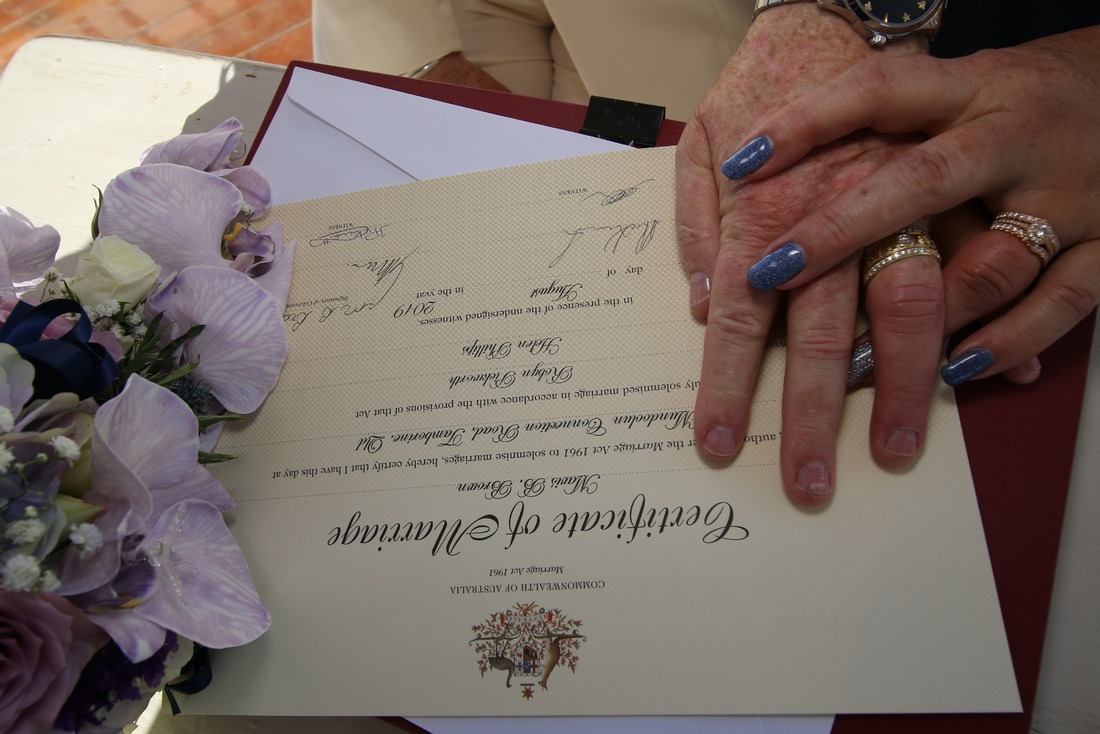 COMMONWEALTH OF AUSTRALIA
Marriage Act 1961
Certificate of Marriage
Mavis B. Brown
the Marriage Act 1961 to solemnise marriages, hereby certify that I have this day at
Connection Road, Tamborine, Qld
solemnised marriage in accordance with the provisions of that Act
Robyn Pickworth
Helen Phillips
in the presence of the undersigned witnesses.
day of August in the year 2019
Signature of Celebrant
WITNESS WITNESS